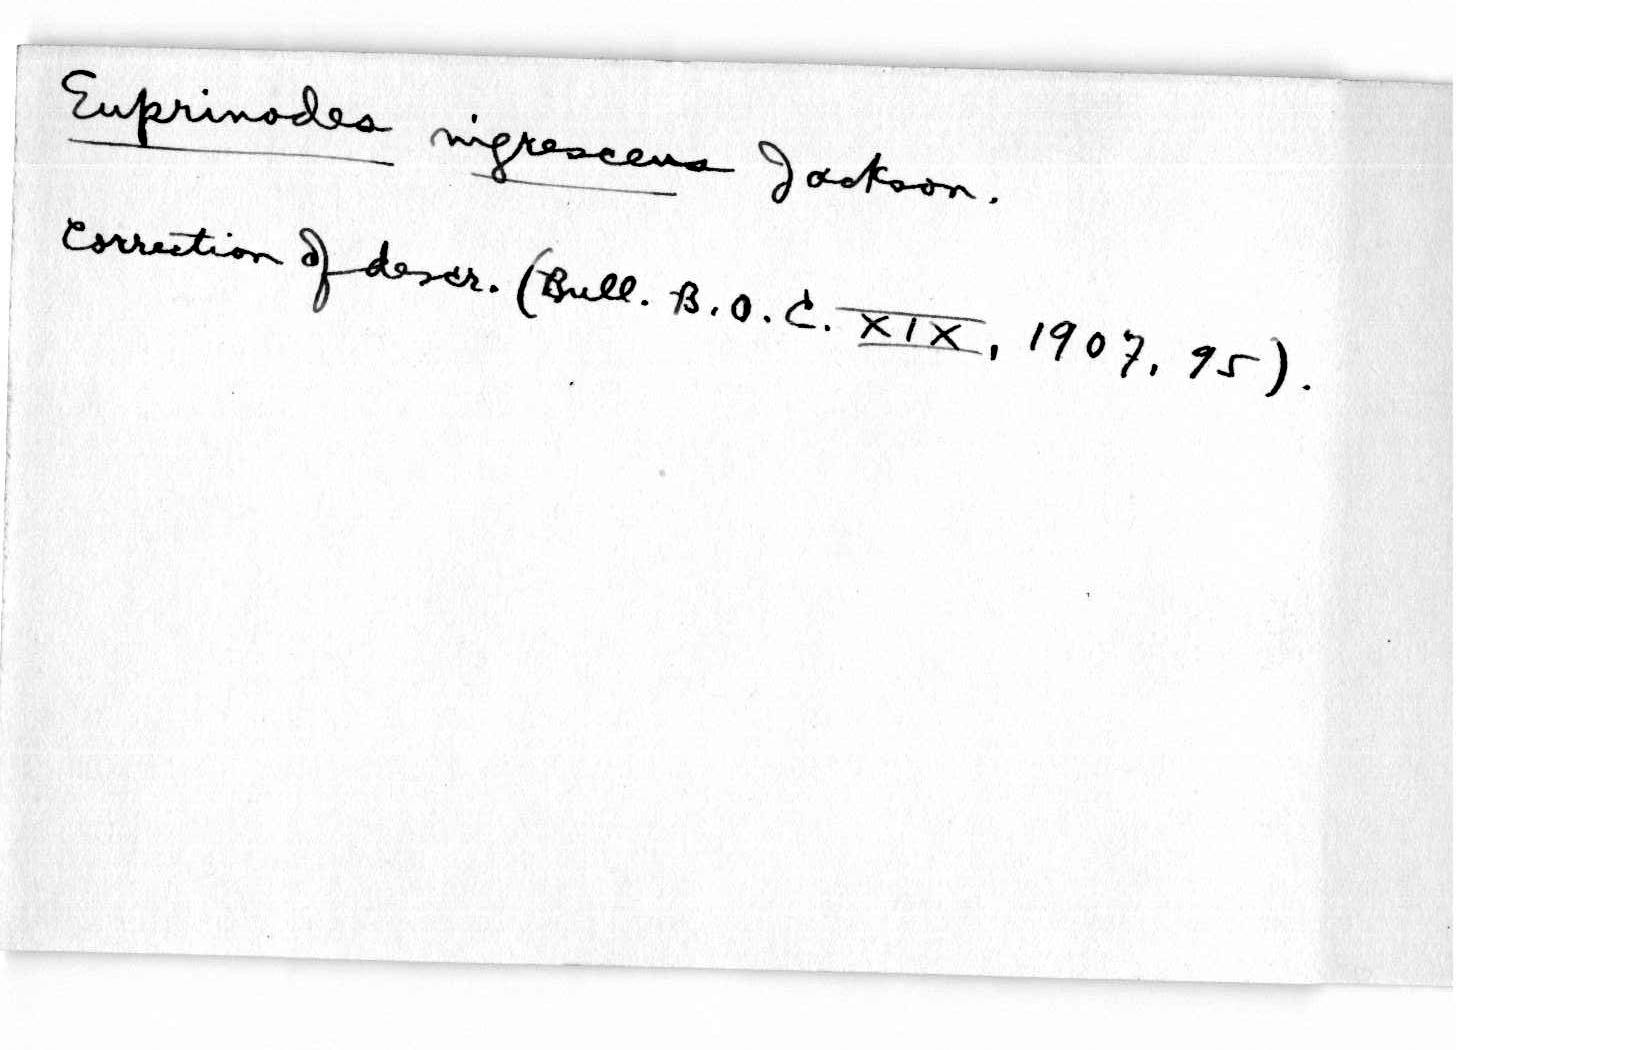 Euprinodes nigrescens Jackson.
Correction of descr. (Bull. B.O.C. XIX, 1907, 95).